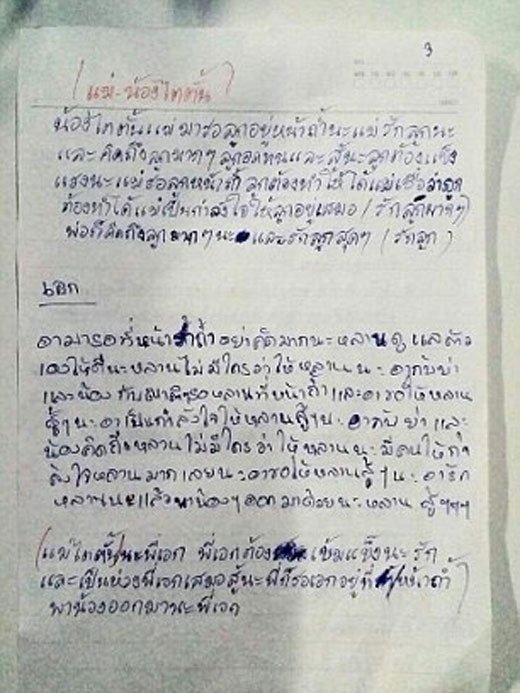 3
(แม่-น้องไตตั้น)
น้องไตตั้นแม่มารอลูกอยู่หน้าถ้ำนะแม่รักลูกนะ
และคิดถึงลูกมากๆลูกอดทนและสู้นะลูกต้องแข็ง
แรงนะแม่รอลูกหน้าถ้ำ ลูกต้องทำให้ได้แม่เชื่อว่าลูก
ต้องทำได้แม่เป็นกำลังใจให้ลูกอยู่เสมอ (รักลูกมากๆ)
พ่อก็คิดถึงลูกมากๆนะ และรักลูกสุดๆ (รักลูก)
เอก
อามารอที่หน้าถ้ำอย่าคิดมากนะหลานดูแลตัว
เองให้ดีนะหลานไม่มีใครว่าให้หลานนะ อากับย่า
และน้อง รอหลานที่หน้าถ้ำและอาขอให้หลาน
สู้ๆนะอาเป็นกำลังใจให้หลานสู้ๆนะ อากับย่า และ
น้องคิดถึงหลานไม่มีใครว่าให้หลานนะมีคนให้กำ
ลังใจหลานมากเลยนะอาขอให้หลานสู้ๆนะ อารัก
หลานนะแล้วพาน้องๆออกมาด้วยนะหลาน สู้ๆๆๆ
(แม่ไตตั้น)นะพี่เอก พี่เอกต้อง เข้มแข็งนะรัก
และเป็นห่วงพี่เอกเสมอสู้นะพี่ก็รอเอกอยู่ที่ หน้าถ้ำ
พาน้องออกมานะพี่เอก